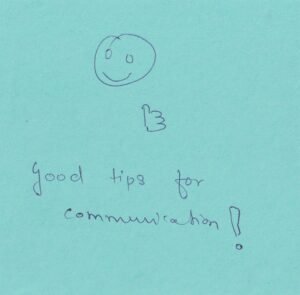 Good tips for
communication!